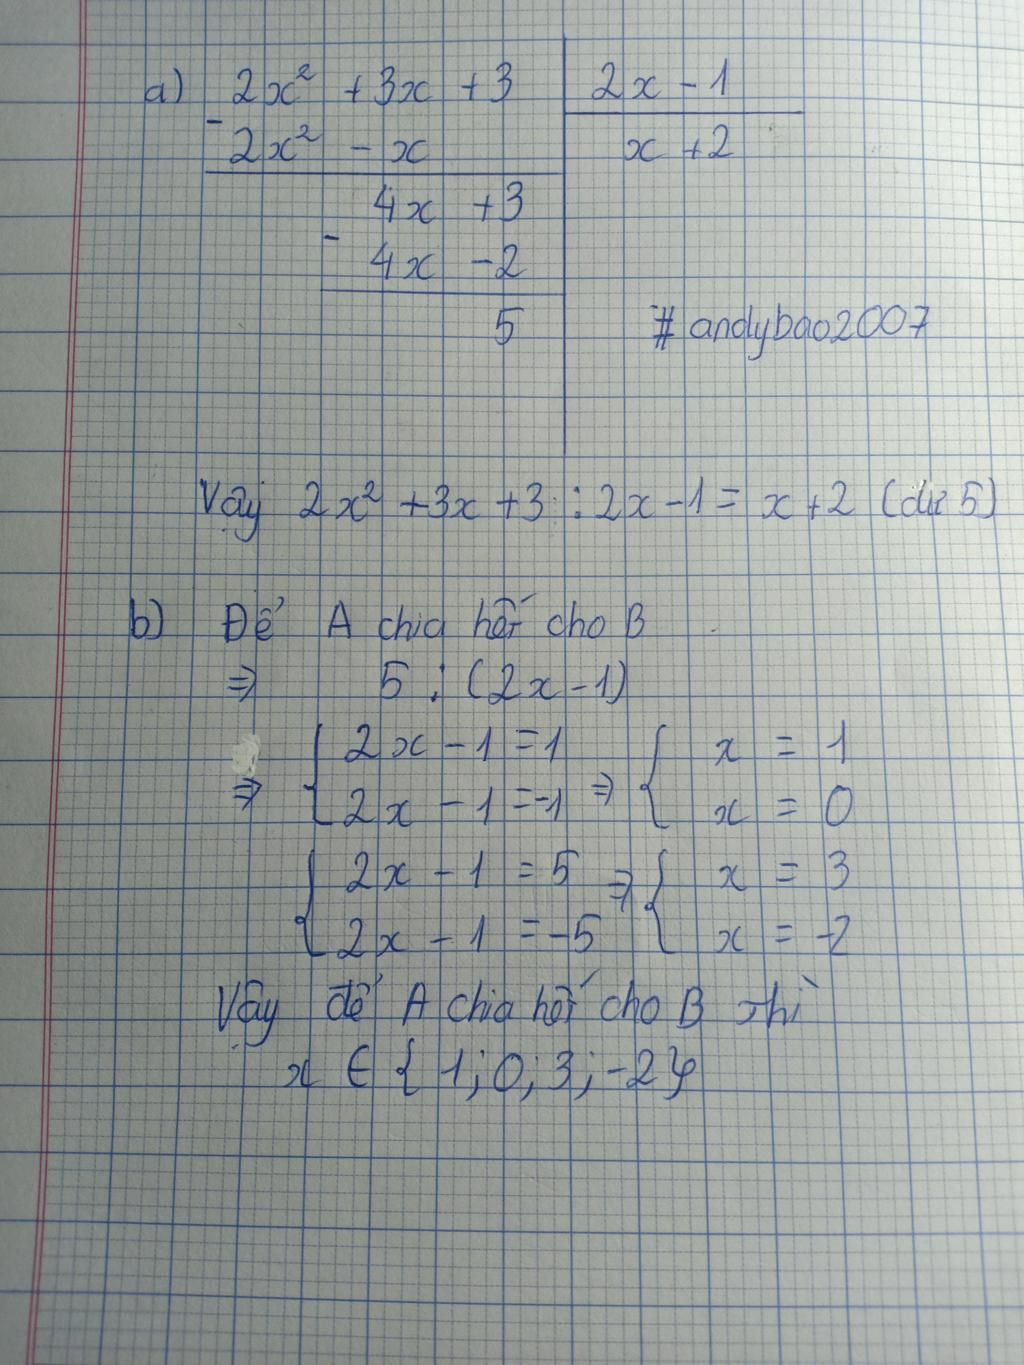 a) 2x² + 3x + 3 | 2x - 1
- 2x² - x | x + 2
4x + 3
- 4x - 2
5
#andybao2007
Vậy 2x² + 3x + 3 : 2x - 1 = x + 2 (dư 5)
b) Để A chia hết cho B
⇒ 5 ⋮ (2x - 1)
⇒ { 2x - 1 = 1 ⇒ { x = 1
2x - 1 = -1 x = 0
{ 2x - 1 = 5 ⇒ { x = 3
2x - 1 = -5 x = -2
Vậy để A chia hết cho B thì
x ∈ { 1; 0; 3; -2}